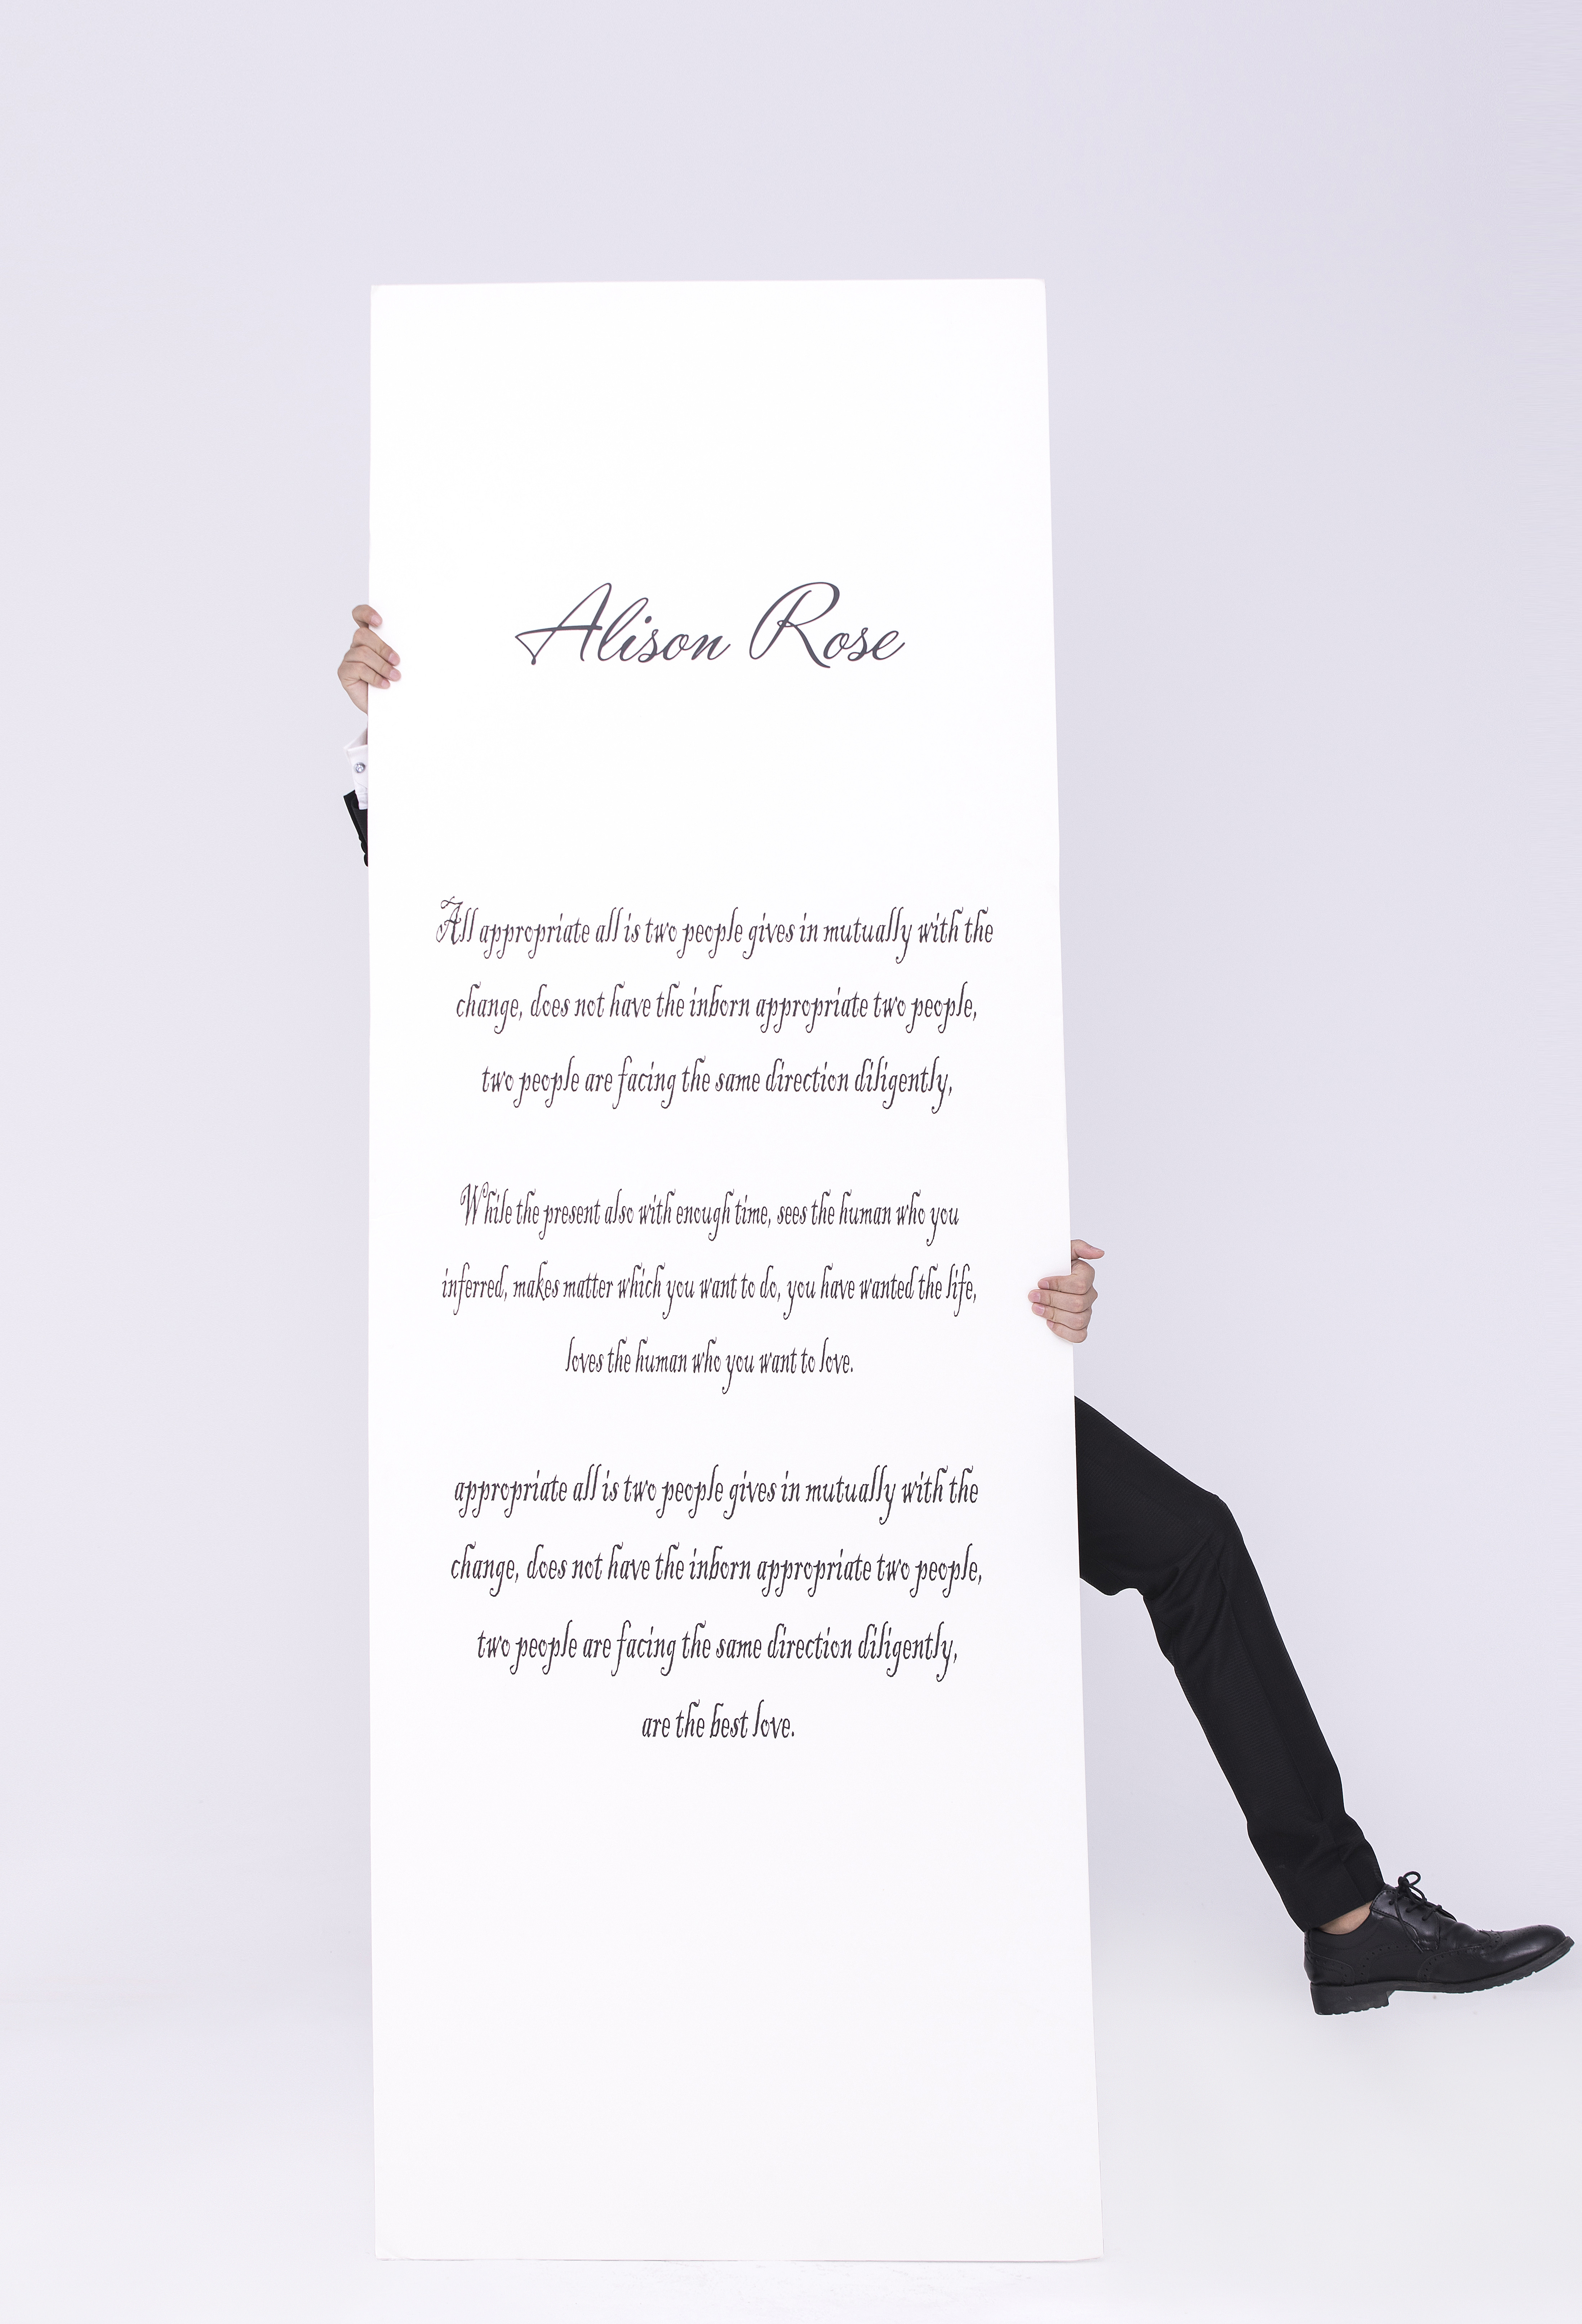 Alison Rose
All appropriate all is two people gives in mutually with the
change, does not have the inborn appropriate two people,
two people are facing the same direction diligently,
While the present also with enough time, sees the human who you
inferred, makes matter which you want to do, you have wanted the life,
loves the human who you want to love.
appropriate all is two people gives in mutually with the
change, does not have the inborn appropriate two people,
two people are facing the same direction diligently,
are the best love.